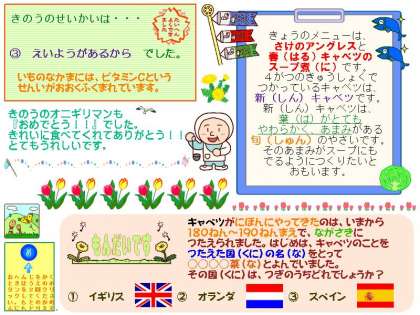 きのうのせいかいは・・・
③ えいようがあるから でした。
いものなかまには、ビタミンCという
せいぶんがおおくふくまれています。
きのうのオニギリマンも
『おめでとう!!』でした。
きれいに食べてくれてありがとう!!
とてもうれしいです。
きょうのメニューは、
さけのアングレスと
春(はる)キャベツの
スープ煮(に)です。
4がつのきゅうしょくで
つかっているキャベツは、
新(しん)キャベツです。
新(しん)キャベツは、
葉(は)がとても
やわらかく、あまみがある
旬(しゅん)のやさいです。
そのあまみがスープにも
でるようにつくりたいと
おもいます。
もんだいです
キャベツがにほんにやってきたのは、いまから
180ねん~190ねんまえで、ながさきに
つたえられました。はじめは、キャベツのことを
つたえた国(くに)の名(な)をとって
○○○○菜(な)とよんでいました。
その国(くに)は、つぎのうちどれでしょうか?
① イギリス
② オランダ
③ スペイン